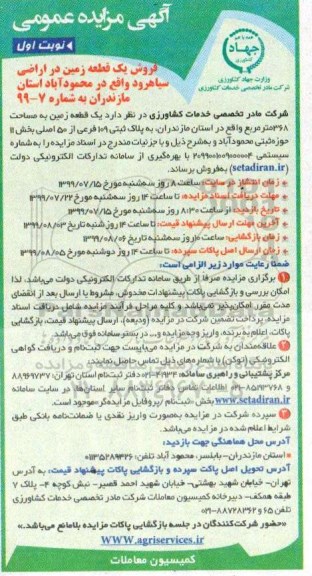 آگهی مزایده عمومی
نوبت اول
جهاد
وزارت جهاد کشاورزی
شرکت مادر تخصصی خدمات کشاورزی
فروش یک قطعه زمین در اراضی
سیاهرود واقع در محمودآباد استان
مازندران به شماره ۷-۹۹
شرکت مادر تخصصی خدمات کشاورزی در نظر دارد یک قطعه زمین به مساحت
۳۶۸مترمربع واقع در استان مازندران، به پلاک ثبتی ۱۰۹ فرعی از ۵۰ اصلی بخش ۱۱
حوزه‌ثبتی محمودآباد به‌شرح ذیل و با جزئیات مندرج در اسناد مزایده را به‌شماره
سیستمی با بهره‌گیری از سامانه تدارکات الکترونیکی دولت
(setadiran.ir) به‌فروش برساند.
زمان انتشار در سایت: ساعت ۸ روز سه‌شنبه مورخ ۱۳۹۹/۰۷/۱۵
مهلت دریافت اسناد مزایده: تا ساعت ۱۴ روز سه‌شنبه مورخ ۱۳۹۹/۰۷/۲۲
تاریخ بازدید: از ساعت ۸:۳۰ روز سه‌شنبه مورخ ۱۳۹۹/۰۷/۱۵
آخرین مهلت ارسال پیشنهاد قیمت: تا ساعت ۱۴ روز شنبه تاریخ ۱۳۹۹/۰۸/۰۳
زمان بازگشایی: ساعت ۱۰ روز سه‌شنبه تاریخ ۱۳۹۹/۰۸/۰۶
زمان ارسال اصل پاکات سپرده: تا ساعت ۱۴ روز دوشنبه مورخ ۱۳۹۹/۰۸/۰۵
ضمنا رعایت موارد زیر الزامی است:
۱ برگزاری مزایده صرفا از طریق سامانه تدارکات الکترونیکی دولت می‌باشد، لذا
امکان بررسی و بازگشایی پاکات پیشنهادات مخدوش، مشروط یا ارسال بعد از انقضای
مدت مقرر امکان‌پذیر نمی‌باشد و کلیه مراحل فرآیند مزایده شامل دریافت اسناد
مزایده، پرداخت تضمین شرکت در مزایده (ودیعه)، ارسال پیشنهاد قیمت، بازگشایی
پاکات، اعلام به برنده، واریز وجه مزایده و... در بستر سامانه فوق می‌باشد.
۲ علاقه‌مندان به شرکت در مزایده می‌بایست جهت ثبت‌نام و دریافت گواهی
الکترونیکی (توکن) با شماره‌های ذیل تماس حاصل نمایند:
مرکز پشتیبانی و راهبری سامانه: ۴۱۹۳۴-۰۲۱ دفتر ثبت‌نام استان تهران: ۸۸۹۶۹۷۳۷
و ۸۵۱۹۳۷۶۸-۰۲۱ اطلاعات تماس دفاتر ثبت‌نام سایر استان‌ها در سایت سامانه
www.setadiran.ir بخش «ثبت‌نام /پروفایل مزایده‌گر» موجود است.
۳ سپرده شرکت در مزایده به‌صورت واریز نقدی یا ضمانت‌نامه بانکی طبق
شرایط اعلام شده در مزایده می‌باشد.
آدرس محل هماهنگی جهت بازدید:
استان مازندران-بابلسر، محمود آباد تلفن: ۰۱۱۳۵۲۸۹۴۲۶
آدرس تحویل اصل پاکات سپرده و بازگشایی پاکات پیشنهاد قیمت: به آدرس
تهران- خیابان شهید بهشتی- خیابان شهید احمد قصیر- نبش کوچه ۴- پلاک ۷
طبقه همکف- دبیرخانه کمیسیون معاملات شرکت مادر تخصصی خدمات کشاورزی
تلفن ۶۵ و ۸۸۷۲۸۳۶۲-۰۲۱
«حضور شرکت‌کنندگان در جلسه بازگشایی پاکات مزایده بلامانع می‌باشد.»
WWW.agriservices.ir
کمیسیون معاملات